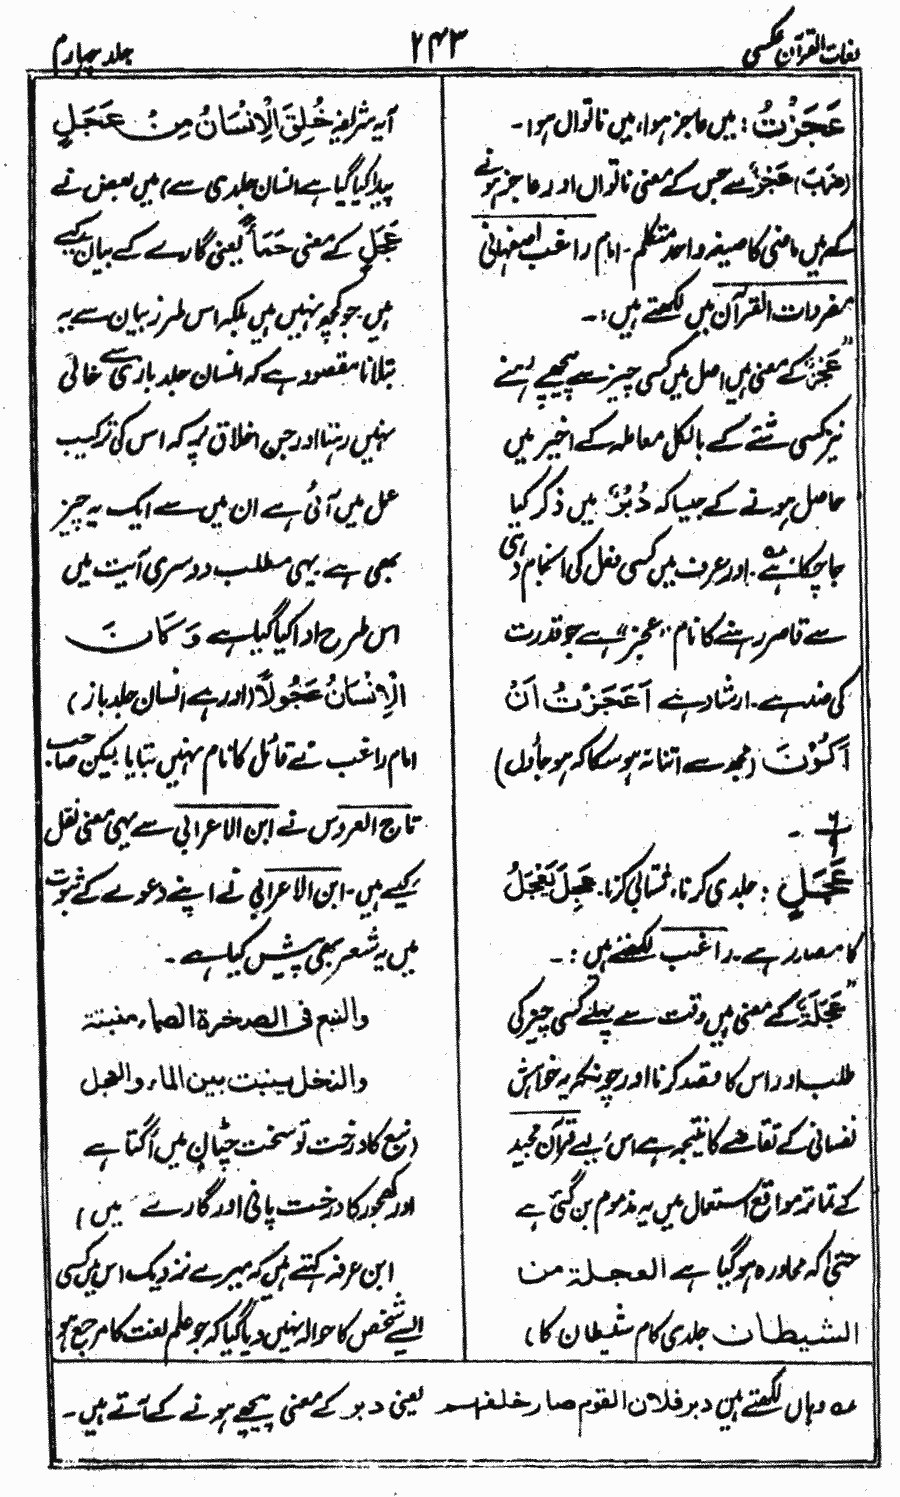 لغات القرآن عکسی
۲۴۳
جلد چہارم
عَجَزْتُ : میں عاجز ہوا، میں ناتواں ہوا۔
(ضَرَبَ) عَجْزٌ سے جس کے معنی ناتواں اور عاجز ہونے
کے ہیں ماضی کا صیغہ واحد متکلم۔ امام راغب اصفہانی
مفردات القرآن میں لکھتے ہیں:۔
"عَجْزٌ کے معنی ہیں اصل میں کسی چیز سے پیچھے رہنے
نیز کسی شئے کے بالکل معاملہ کے اخیر میں
حاصل ہونے کے جیسا کہ دُبُرٌ میں ذکر کیا
جا چکا ہے۔ اور عرف میں کسی فعل کی انجام دہی
سے قاصر رہنے کا نام "عجز" ہے جو قدرت
کی ضد ہے۔ ارشاد ہے اَعَجَزْتُ اَنْ
اَكُوْنَ (مجھ سے اتنا نہ ہو سکا کہ ہو جاؤں)
عَجَلٍ : جلدی کرنا، شتابی کرنا۔ عَجِلَ يَعْجَلُ
کا مصدر ہے۔ راغب لکھتے ہیں :۔
"عَجَلَةٌ کے معنی ہیں وقت سے پہلے کسی چیز کی
طلب اور اس کا قصد کرنا اور چونکہ یہ خواہش
نفسانی کے تقاضے کا نتیجہ ہے اس لیے قرآن مجید
کے تمامتر مواقع استعمال میں یہ مذموم بن گئی ہے
حتیٰ کہ محاورہ ہو گیا ہے العجلة من
الشيطان جلدی کام شیطان کا)
آیہ شریفہ خُلِقَ الْاِنْسَانُ مِنْ عَجَلٍ
پیدا کیا گیا ہے انسان جلدی سے) میں بعض نے
عَجَلٍ کے معنی حَمَأٍ یعنی گارے کے بیان کیے
ہیں۔ جو کچھ نہیں ہیں بلکہ اس طرز بیان سے یہ
بتلانا مقصود ہے کہ انسان جلد بازی سے خالی
نہیں رہتا اور جن اخلاق پر کہ اس کی ترکیب
عمل میں آئی ہے ان میں سے ایک یہ چیز
بھی ہے یہی مطلب دوسری آیت میں
اس طرح ادا کیا گیا ہے وَكَانَ
الْاِنْسَانُ عَجُوْلًا (اور ہے انسان جلد باز)
امام راغب نے قائل کا نام نہیں بتایا لیکن صاحب
تاج العروس نے ابن الاعرابی سے یہی معنی نقل
کیے ہیں۔ ابن الاعرابی نے اپنے دعوے کے ثبوت
میں یہ شعر بھی پیش کیا ہے۔
والنبع فى الصخرة الصماء منبتة
والنخل ينبت بين الماء والعجل
(نبع کا درخت تو سخت چٹان میں اُگتا ہے
اور کھجور کا درخت پانی اور گارے میں)
ابن عرفہ کہتے ہیں کہ میرے نزدیک اس میں کسی
ایسے شخص کا حوالہ نہیں دیا گیا کہ جو علم لغت کا مرجع ہو
عہ وہاں لکھتے ہیں دبر فلان القوم صار خلفهم یعنی دبر کے معنی پیچھے ہونے کے آتے ہیں۔